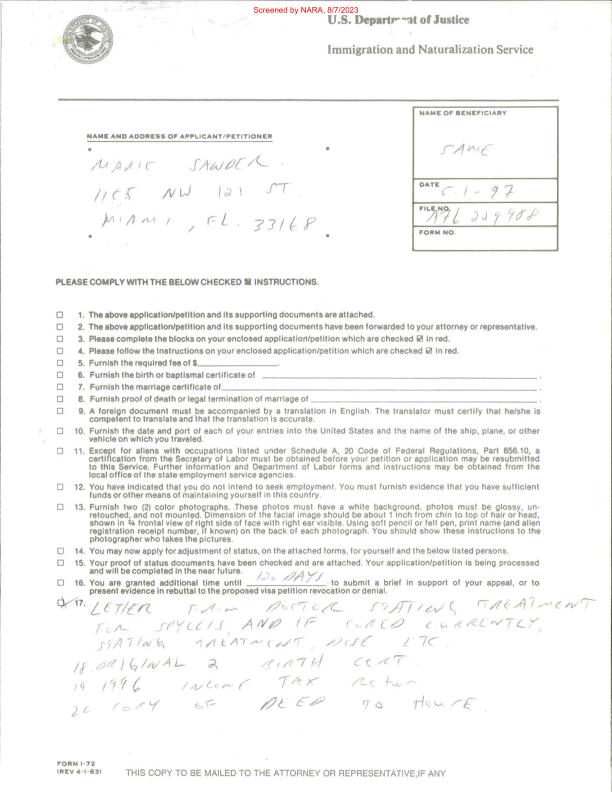 Screened by NARA, 8/7/2023
U.S. Department of Justice
Immigration and Naturalization Service
NAME OF BENEFICIARY
SAME
NAME AND ADDRESS OF APPLICANT/PETITIONER
MARIE SAWDER.
1155 NW 121 ST.
MIAMI, FL. 33168
DATE
5-1-97
FILE NO.
A76 229 908
FORM NO.
PLEASE COMPLY WITH THE BELOW CHECKED ☒ INSTRUCTIONS.
☐ 1. The above application/petition and its supporting documents are attached.
☐ 2. The above application/petition and its supporting documents have been forwarded to your attorney or representative.
☐ 3. Please complete the blocks on your enclosed application/petition which are checked ☑ in red.
☐ 4. Please follow the Instructions on your enclosed application/petition which are checked ☑ in red.
☐ 5. Furnish the required fee of $
☐ 6. Furnish the birth or baptismal certificate of
☐ 7. Furnish the marriage certificate of
☐ 8. Furnish proof of death or legal termination of marriage of
☐ 9. A foreign document must be accompanied by a translation in English. The translator must certify that he/she is
competent to translate and that the translation is accurate.
☐ 10. Furnish the date and port of each of your entries into the United States and the name of the ship, plane, or other
vehicle on which you traveled.
☐ 11. Except for aliens with occupations listed under Schedule A, 20 Code of Federal Regulations, Part 656.10, a
certification from the Secretary of Labor must be obtained before your petition or application may be resubmitted
to this Service. Further information and Department of Labor forms and instructions may be obtained from the
local office of the state employment service agencies.
☐ 12. You have indicated that you do not intend to seek employment. You must furnish evidence that you have sufficient
funds or other means of maintaining yourself in this country.
☐ 13. Furnish two (2) color photographs. These photos must have a white background, photos must be glossy, un-
retouched, and not mounted. Dimension of the facial image should be about 1 inch from chin to top of hair or head,
shown in ¾ frontal view of right side of face with right ear visible. Using soft pencil or felt pen, print name (and alien
registration receipt number, if known) on the back of each photograph. You should show these instructions to the
photographer who takes the pictures.
☐ 14. You may now apply for adjustment of status, on the attached forms, for yourself and the below listed persons.
☐ 15. Your proof of status documents have been checked and are attached. Your application/petition is being processed
and will be completed in the near future.
☐ 16. You are granted additional time until 120 DAYS to submit a brief in support of your appeal, or to
present evidence in rebuttal to the proposed visa petition revocation or denial.
☒ 17. LETTER FROM DOCTOR STATING TREATMENT
FOR SPYLLIS, AND IF CURED CURRENTLY,
STATING TREATMENT, DOSE ETC.
18 ORIGINAL 2 BIRTH CERT.
19 1996 INCOME TAX Return
20 COPY OF DEED TO HOUSE.
FORM I-72
(REV 4-1-83)
THIS COPY TO BE MAILED TO THE ATTORNEY OR REPRESENTATIVE,IF ANY